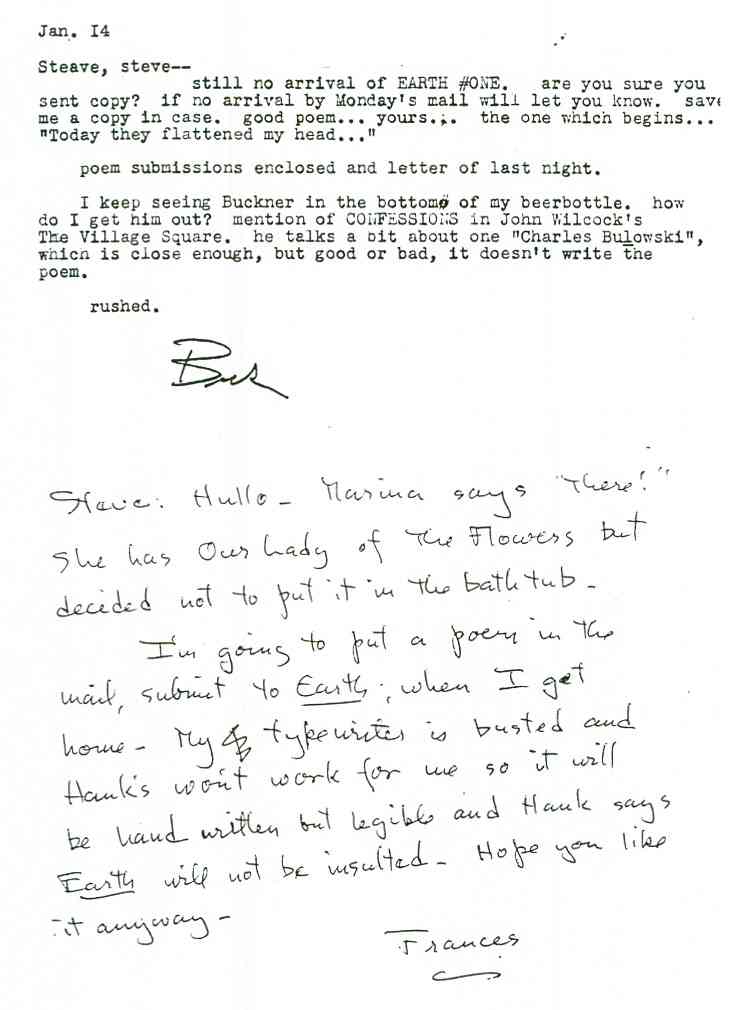 Jan. I4
Steave, steve--
still no arrival of EARTH #ONE. are you sure you
sent copy? if no arrival by Monday's mail will let you know. save
me a copy in case. good poem... yours... the one which begins...
"Today they flattened my head..."
poem submissions enclosed and letter of last night.
I keep seeing Buckner in the bottom of my beerbottle. how
do I get him out? mention of CONFESSIONS in John Wilcock's
The Village Square. he talks a bit about one "Charles Bulowski",
which is close enough, but good or bad, it doesn't write the
poem.
rushed.
Buk
Steve: Hullo - Marina says "There!"
She has Our Lady of the Flowers but
decided not to put it in the bath tub -
I'm going to put a poem in the
mail, submit to Earth, when I get
home - My typewriter is busted and
Hank's won't work for me so it will
be hand written but legible and Hank says
Earth will not be insulted - Hope you like
it anyway -
Frances